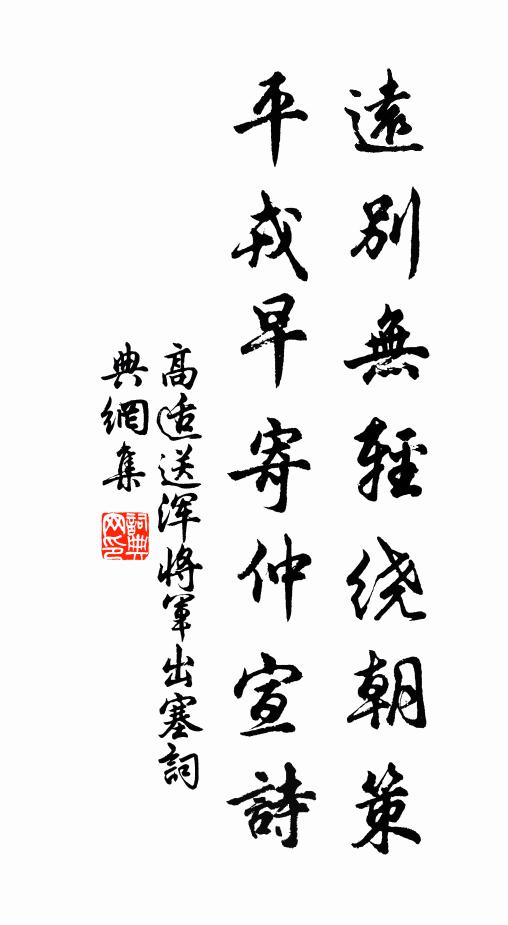 遠別無輕绕朝策
平戎早寄仲宣詩
高适送浑將軍出塞詞
典網集
詞典網印